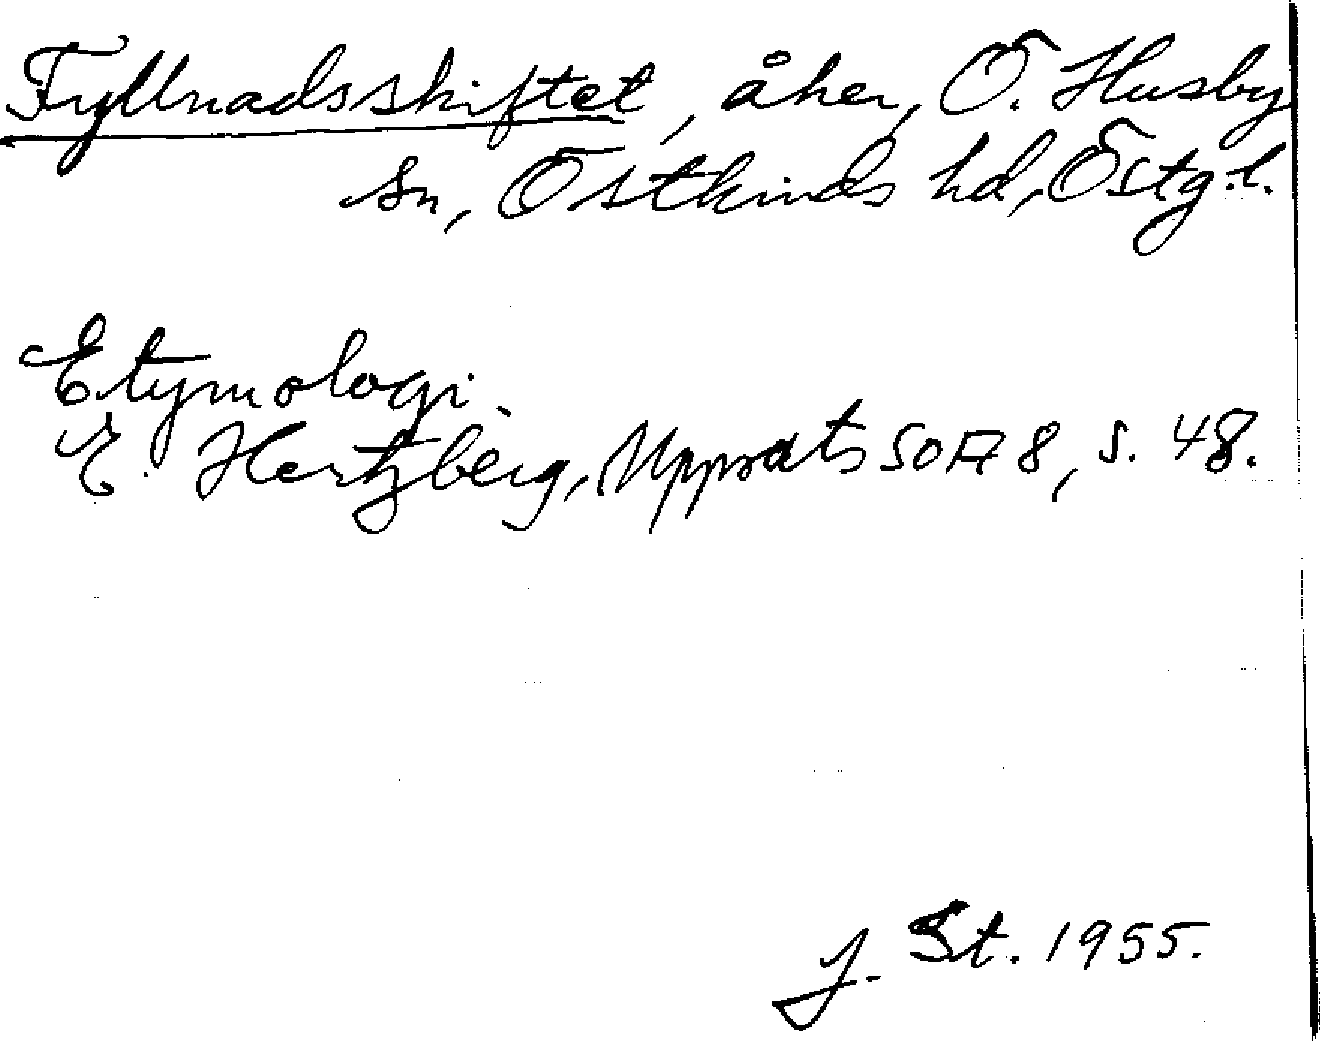 Fyllnadsskiftet, åker, Ö. Husby
sn, Östkinds hd, Östg.l.
Etymologi.
E. Hertzberg, Uppsats SOÄ 8, s. 48.
J. St. 1955.